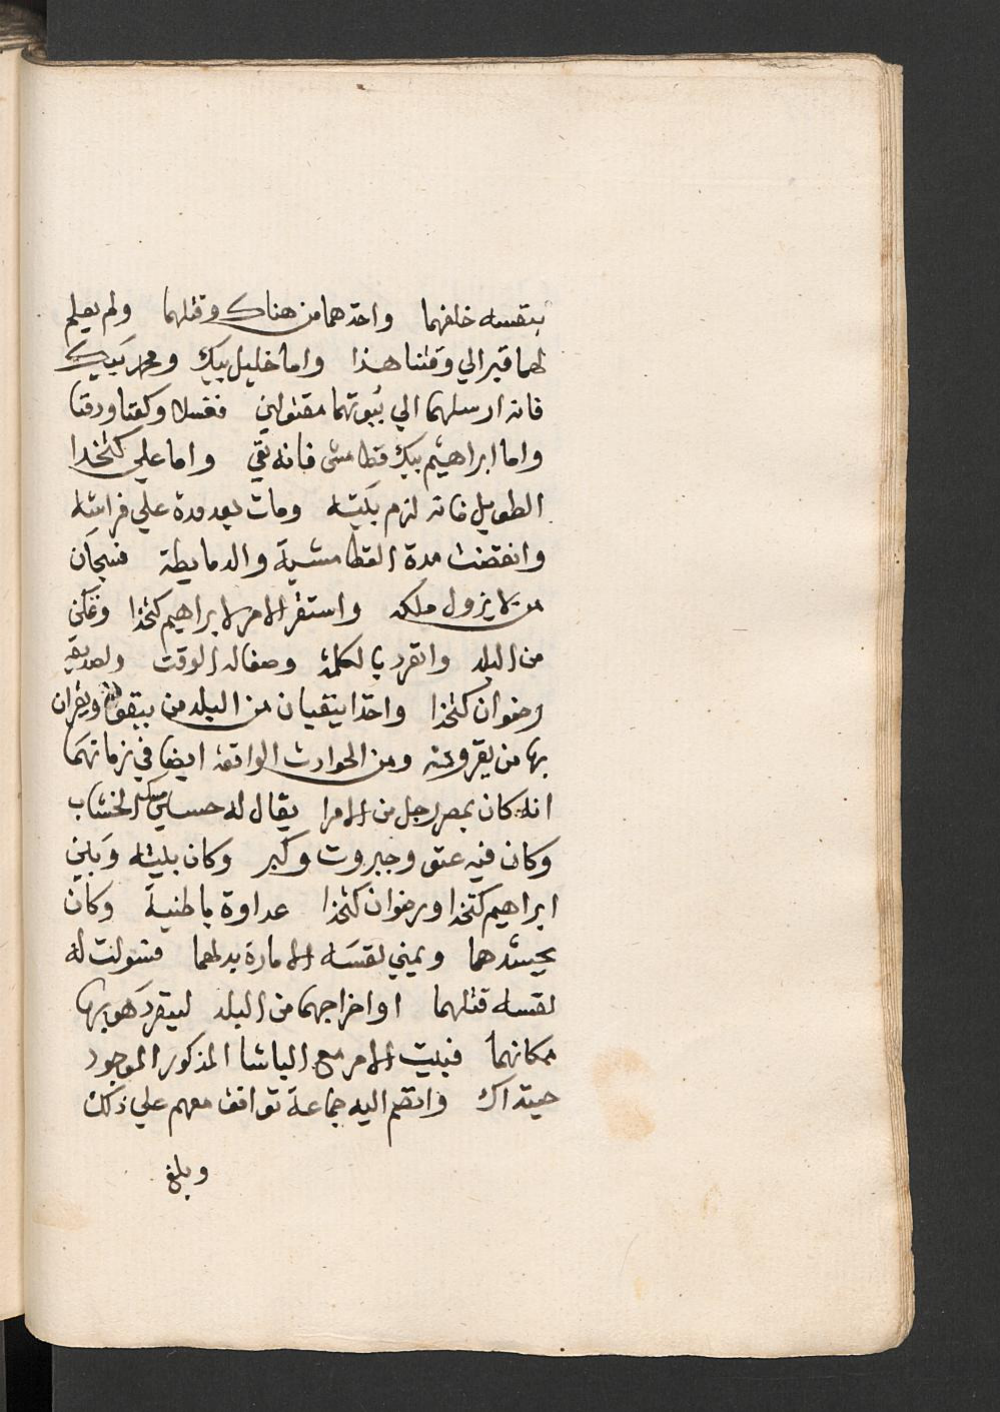 بنفسه خلفهما واخذهما من هناك وقتلهما ولم يعلم
لهما قبر الي وقتنا هذا واما خليل بيك ومحمد بيك
فانه ارسلهما الي بيوتهما مقتولين فغسلا وكفنا ودفنا
واما ابراهيم بيك قطامش فانه نفي واما علي كتخدا
الطويل فانه لزم بيته ومات بعد مدة علي فراشه
وانقضت مدة القطامشية والدمايطة فسبحان
من لا يزول ملكه واستقر الامر لابراهيم كتخدا وتمكن
من البلد وانفرد بالكلمة وصفا له الوقت ولصديقه
رضوان كتخدا واخذا ينفيان من البلد من ينفونه ويقران
بها من يقرونه ومن الحوادث الواقعة ايضا في زمانهما
انه كان بمصر رجل من الامرا يقال له حسين بيك الخشاب
وكان فيه عتو وجبروت وكبر وكان بينه وبين
ابراهيم كتخدا ورضوان كتخدا عداوة باطنية وكان
يحسدهما ويمني نفسه الامارة بدلهما فسولت له
نفسه قتلهما او اخراجهما من البلد لينفرد هو بها
مكانهما فبيت الامر مع الباشا المذكور الموجود
حينذاك وانضم اليه جماعة توافق معهم علي ذلك
وبلغ